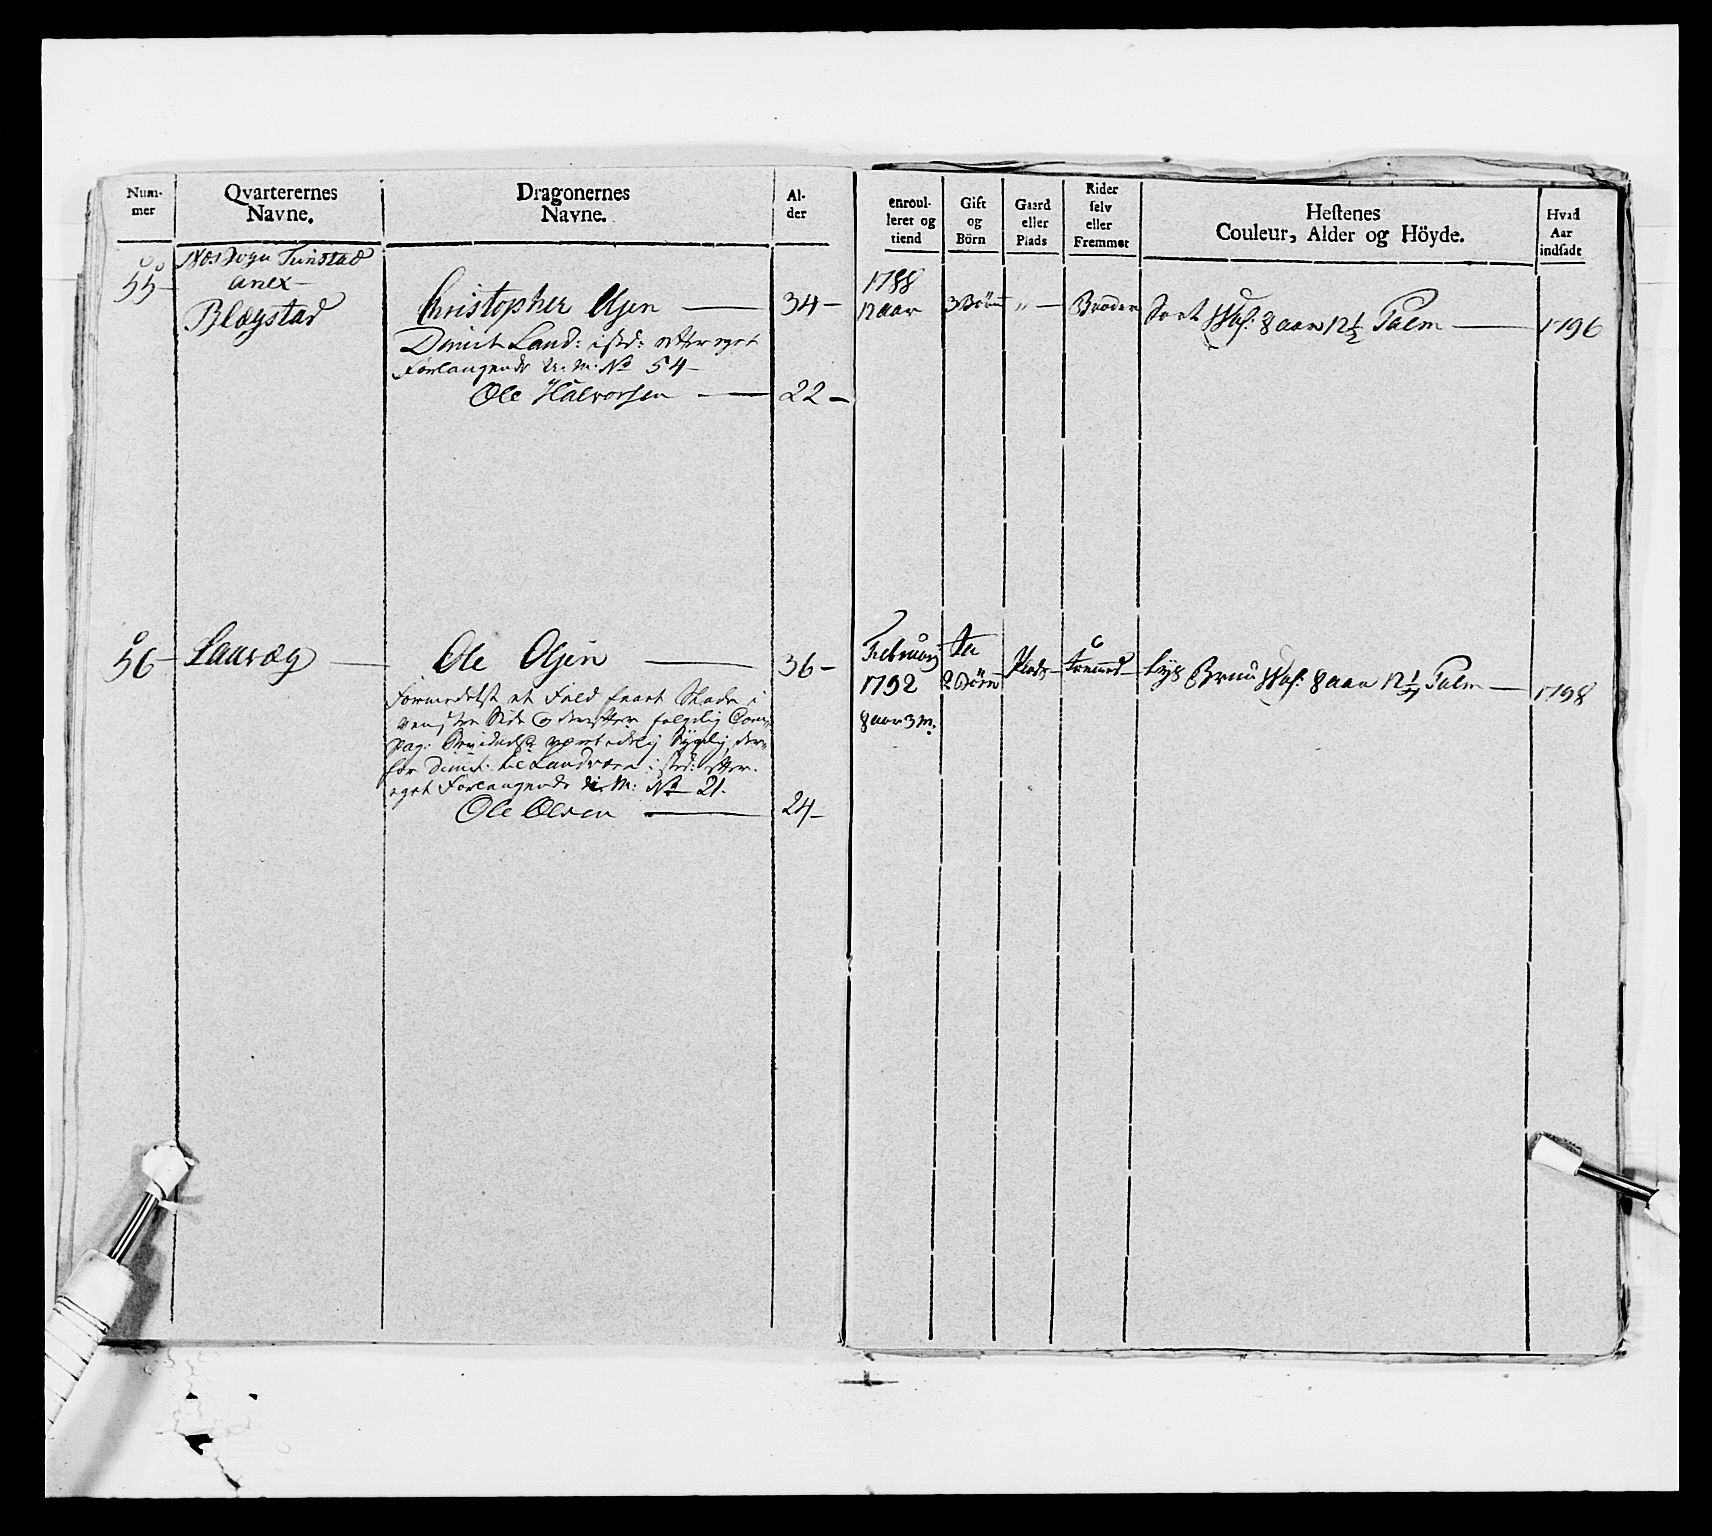 Num-
mer
Qvarterernes
Navne.
Dragonernes
Navne.
Al-
der
enroul-
leret og
tiend
Gift
og
Börn
Gaard
eller
Plads
Rider
selv
eller
Fremmet
Hestenes
Couleur, Alder og Höyde.
Hvad
Aar
indsadt
55-
Næs Sogn Tinstad
anex-
Blegstad
Christopher Olsen
34-
1788
12 aar
3 Börn
"
Broder
Sort 8 aar 12½ Palm
1796
Dimit Land: isted: efter eget
Forlangende N. M. No 54-
Ole Halvorsen
22-
56-
Lauvæg
Ole Olsen
36-
Februarj
1792
8 aar 3 M:
2 Börn
Plads-
Fremed-
Lys Bruun 8 aar 12¼ Palm
1798
Formedelst et Fald faaet Skade i
venstre Side og derefter følgelig Com-
pag:
for Dimit: til Landværn i sted: efter
eget Forlangende M: No 21.
Ole Olsen
24-